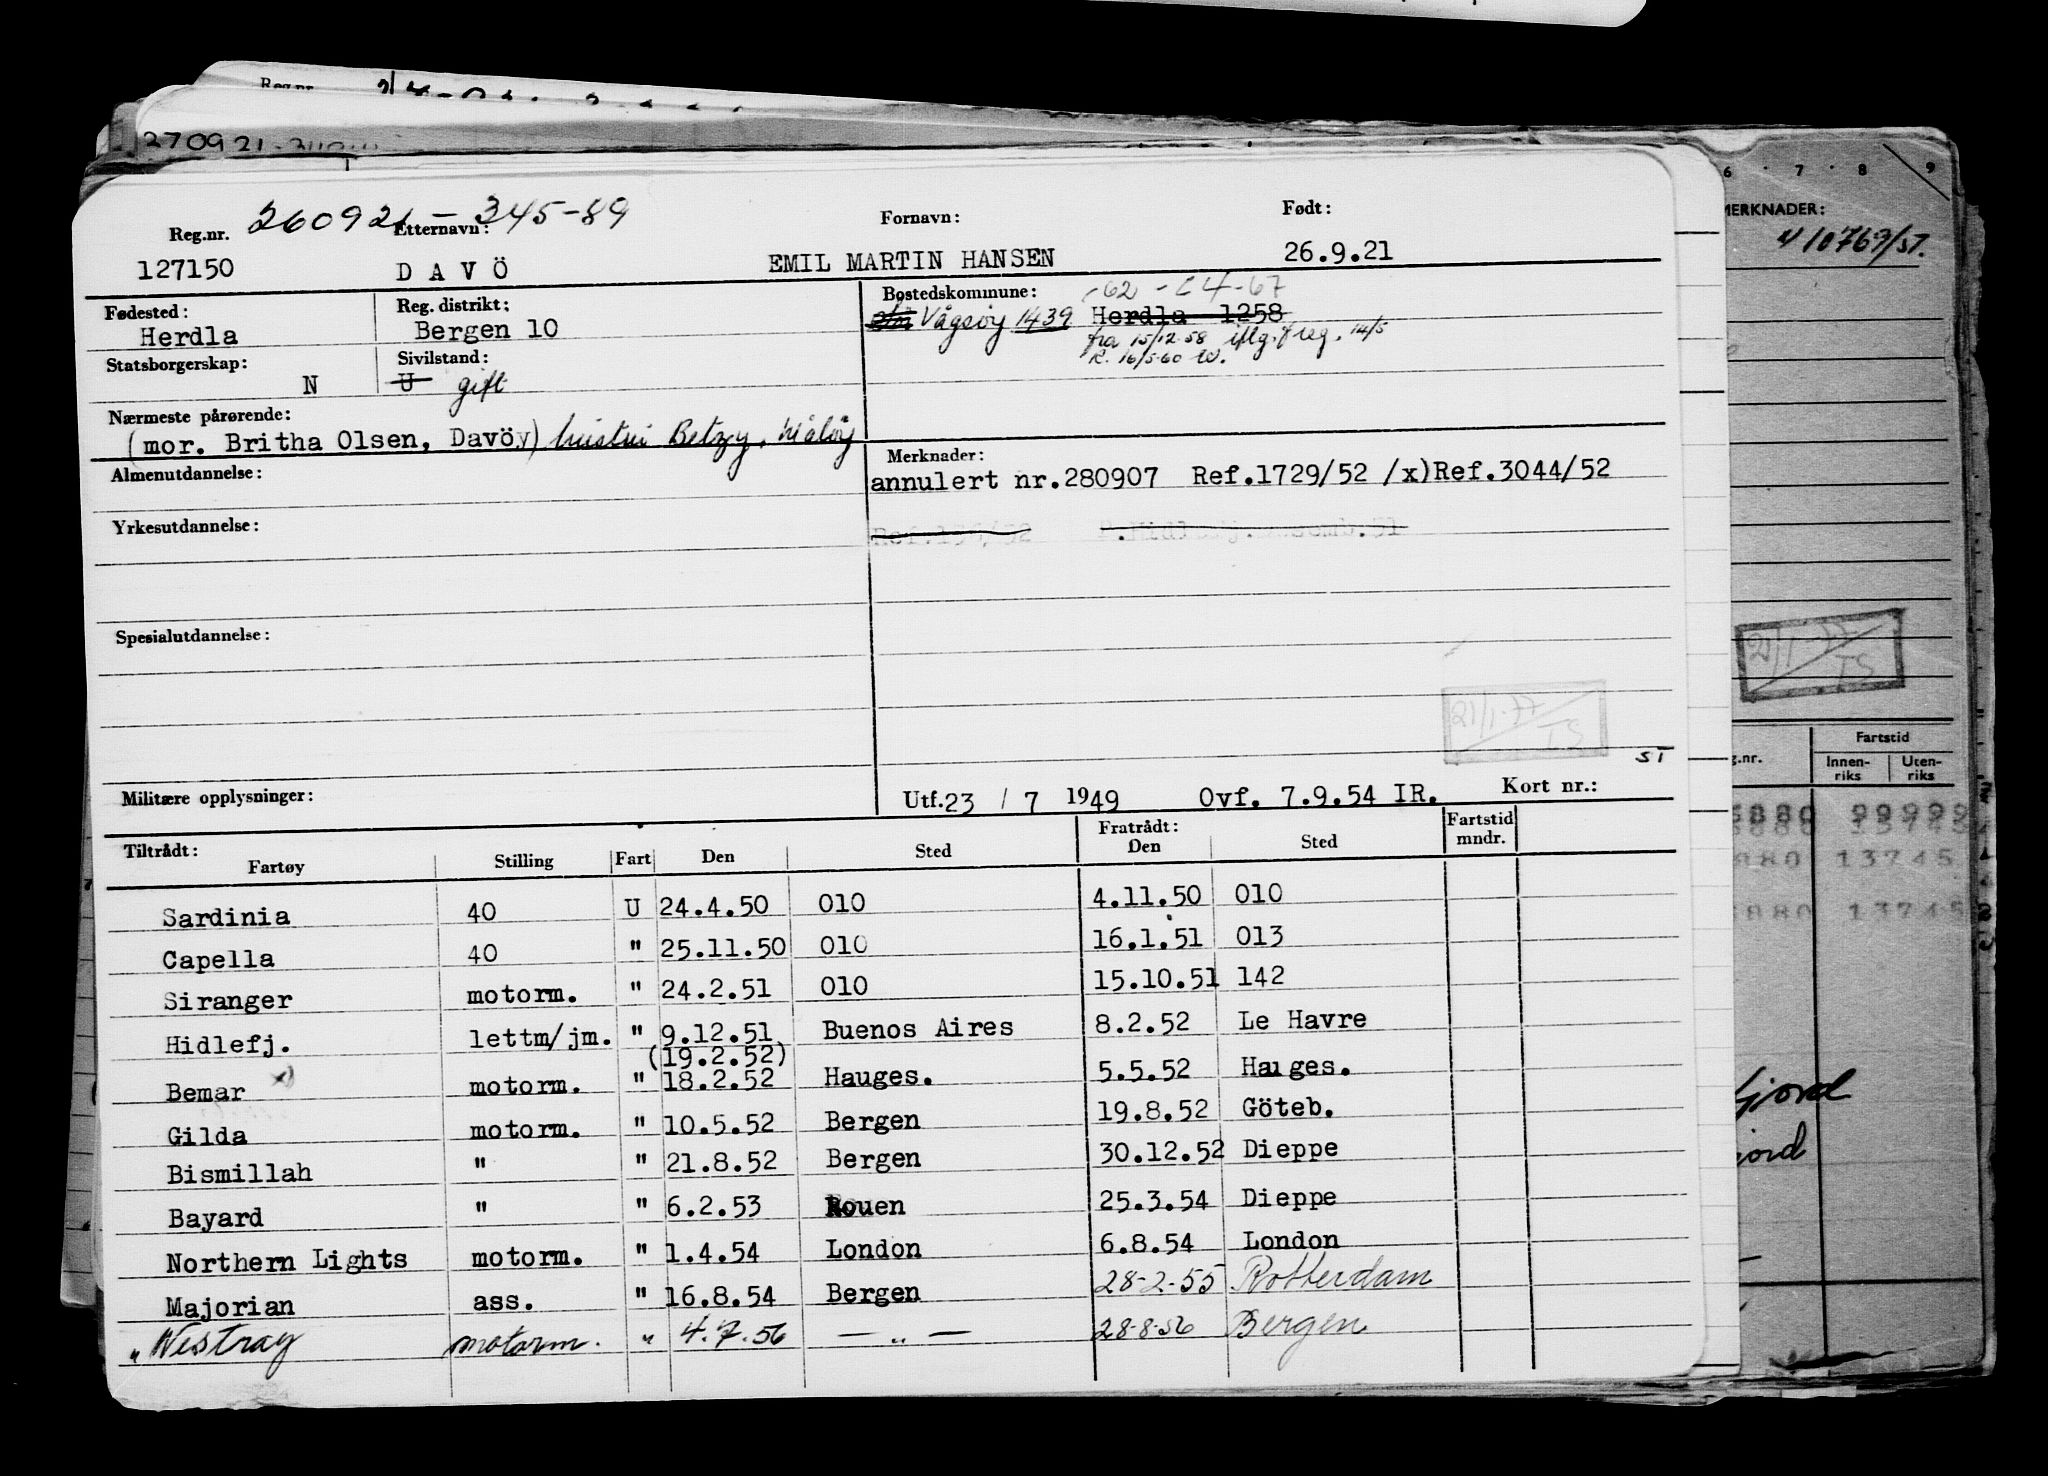 Reg.nr.
270921
6 · 7 · 8 9
MERKNADER:
410769/ST.
260921 - 345-89
Reg.nr. Etternavn: Fornavn: Født:
127150 DAVÖ EMIL MARTIN HANSEN 26.9.21
Fødested: Reg. distrikt: Bostedskommune: -67
Herdla Bergen 10 Vågsøy 1439 Herdla 1258
fra 15/12.58 iflg. freg. 14/5
R. 16/5-60 W.
Statsborgerskap: Sivilstand:
N U gift
Nærmeste pårørende:
(mor. Britha Olsen, Davöy) hustru Betzy, Måløy
Almenutdannelse: Merknader:
annulert nr.280907 Ref.1729/52 /x)Ref.3044/52
Yrkesutdannelse:
Spesialutdannelse:
21/1-77
TS
21/1-77
TS
ST
Militære opplysninger: Utf.23 / 7 1949 Ovf. 7.9.54 IR. Kort nr.:
Tiltrådt: Fratrådt: Fartstid
Fartøy Stilling Fart Den Sted Den Sted mndr.
Sardinia 40 U 24.4.50 010 4.11.50 010
Capella 40 " 25.11.50 010 16.1.51 013
Siranger motorm. " 24.2.51 010 15.10.51 142
Hidlefj. lettm/jm. " 9.12.51 Buenos Aires 8.2.52 Le Havre
(19.2.52)
Bemar motorm. " 18.2.52 Hauges. 5.5.52 Hauges.
Gilda motorm. " 10.5.52 Bergen 19.8.52 Göteb.
Bismillah " " 21.8.52 Bergen 30.12.52 Dieppe
Bayard " " 6.2.53 Rouen 25.3.54 Dieppe
Northern Lights motorm. " 1.4.54 London 6.8.54 London
Majorian ass. " 16.8.54 Bergen 28-2-55 Rotterdam
" Westray motorm. " 4.7.56 — " — 28-8-56 Bergen
g.nr. Fartstid
Innen-riks Uten-riks
880 99999
880 13745
880 13745
fjord
jord